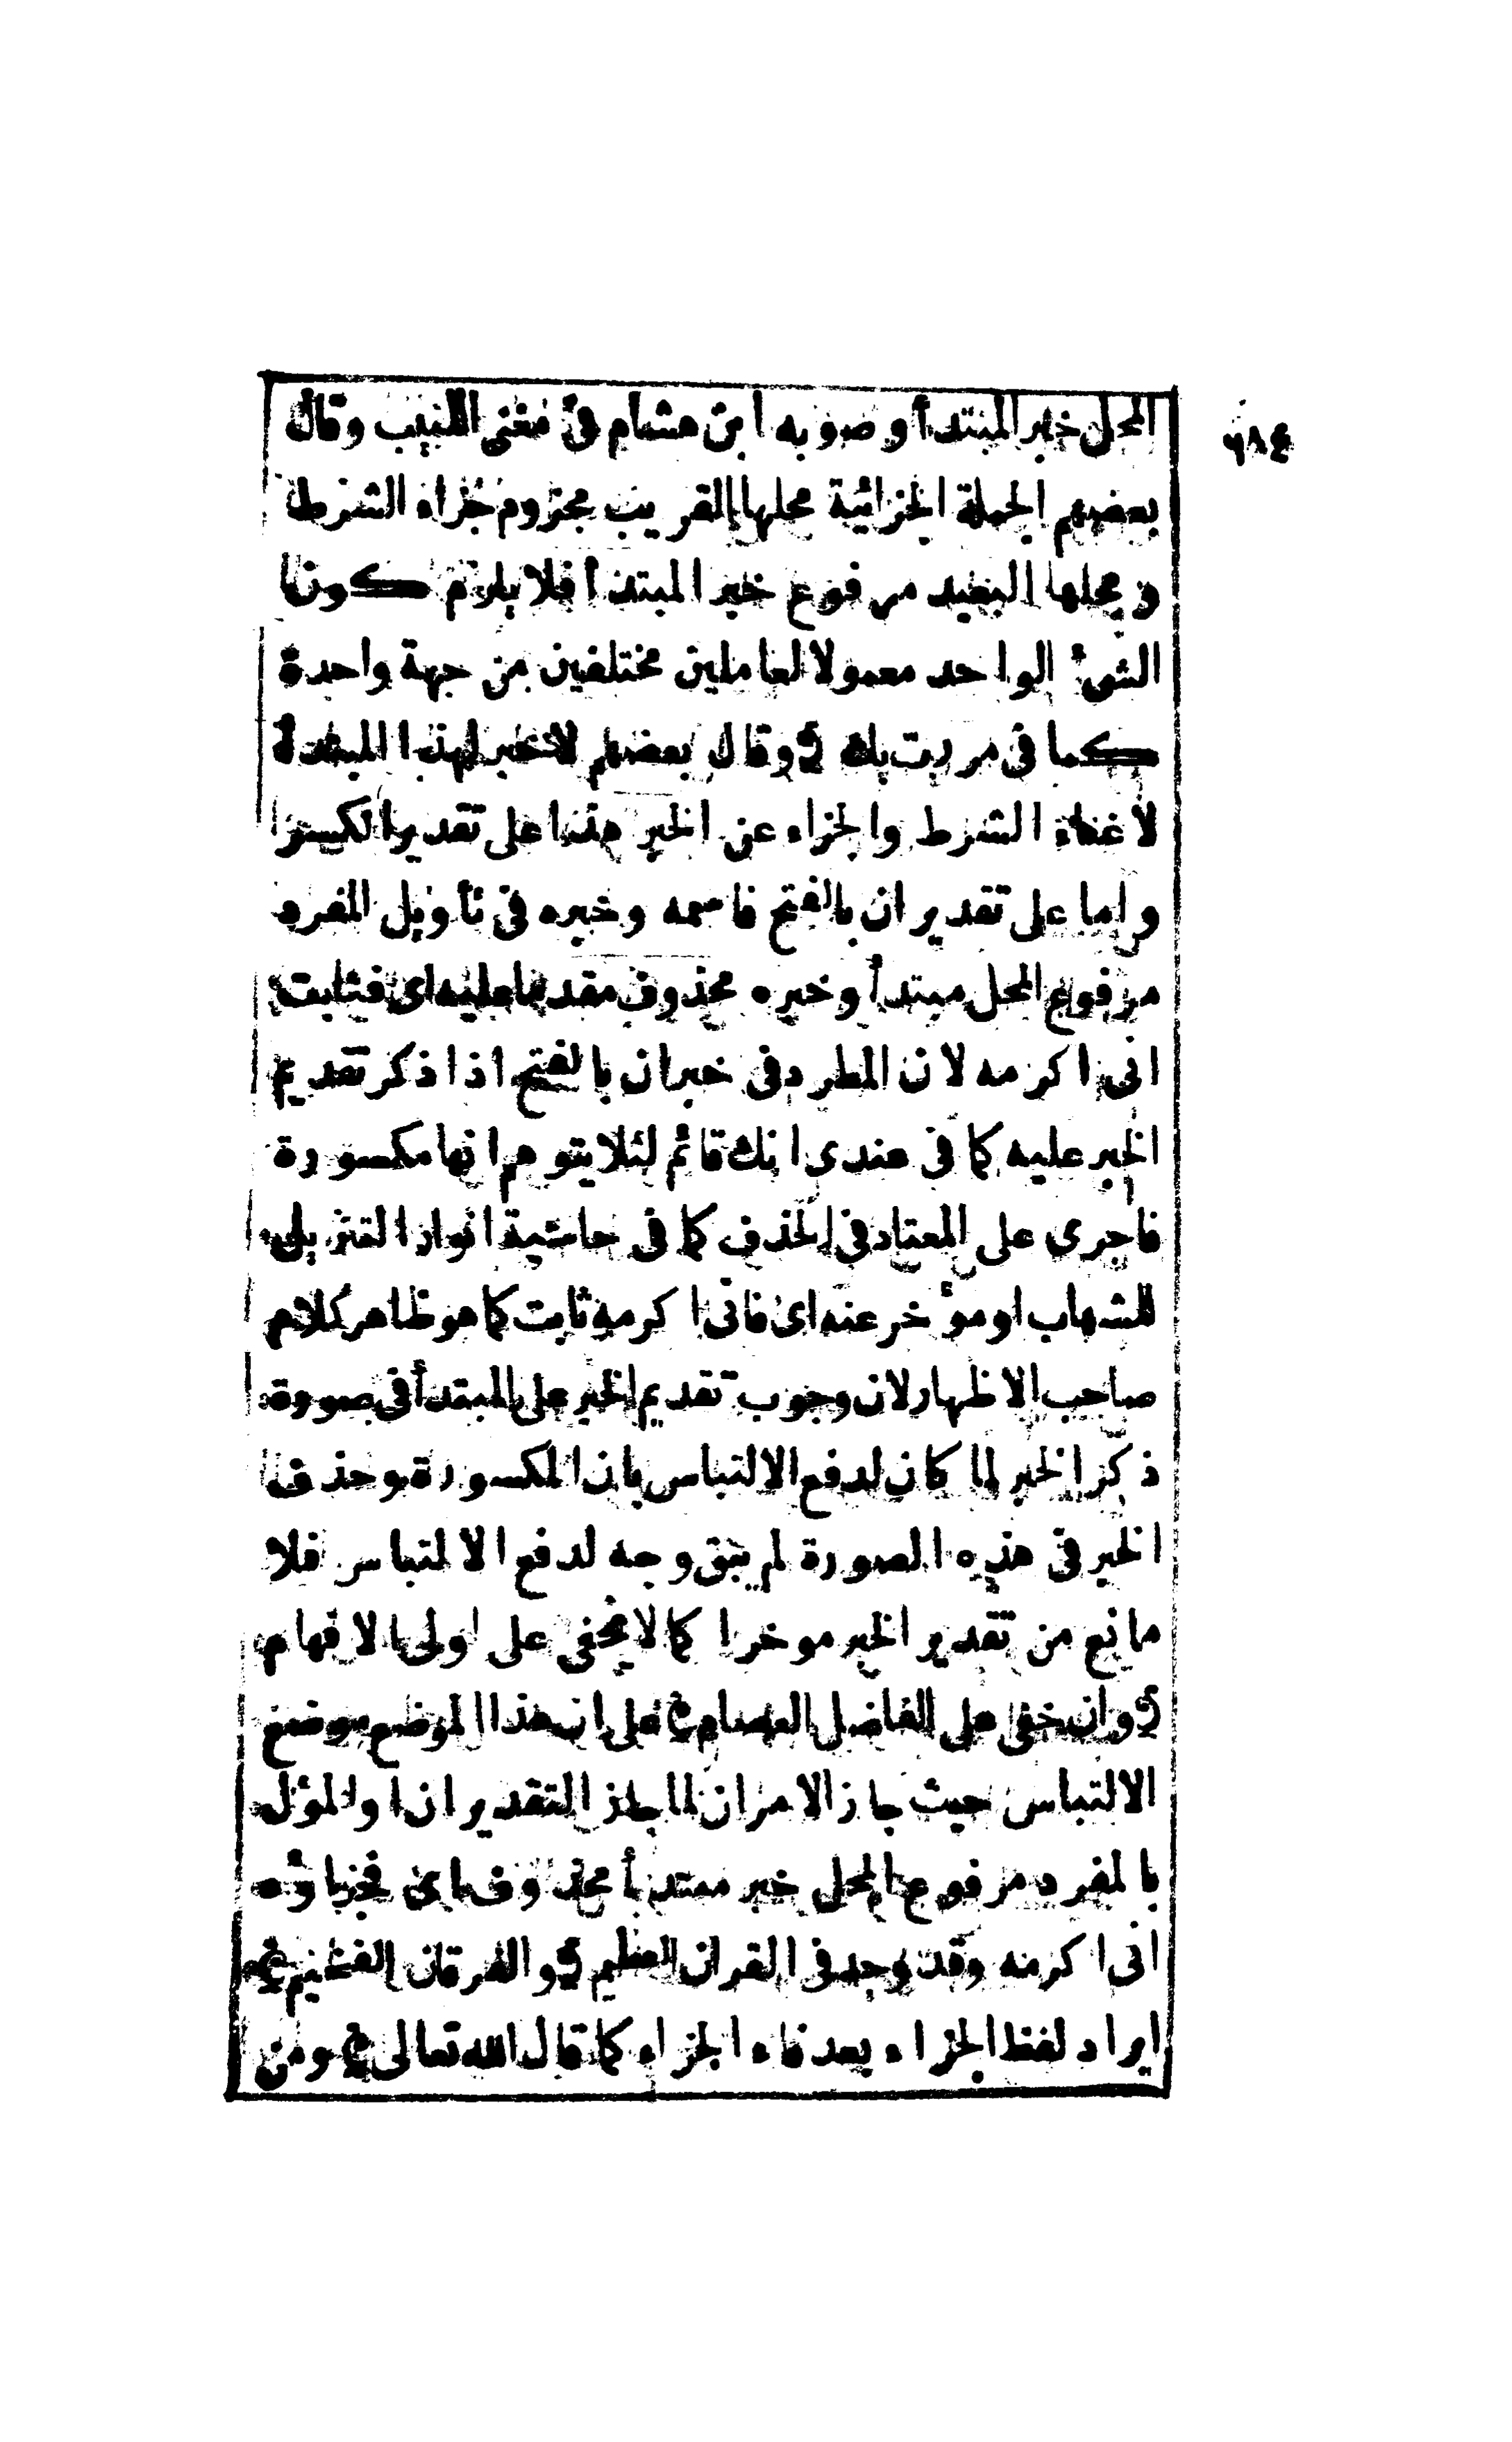 المحل خبر المبتدأ وصوبه ابن هشام فى مغنى اللبيب وقال
بعضهم الجملة الجزائية محلها القريب مجزوم جزاء الشرط
ومحلها البعيد مرفوع خبر المبتدأ فلا يلزم كون
الشئ الواحد معمولا لعاملين مختلفين من جهة واحدة
كما فى مررت بك وقال بعضهم لا خبر لهذا المبتدأ
لاغناء الشرط والجزاء عن الخبر هذا على تقدير الكسر
واما على تقدير ان بالفتح فاسمه وخبره فى تأويل المفرد
مرفوع المحل مبتدأ وخبره محذوف مقدما عليه اى فثابت
انى اكرمه لان المطرد فى خبر ان بالفتح اذا ذكر تقديم
الخبر عليه كما فى عندى انك قائم لئلا يتوهم انها مكسورة
فاجرى على المعتاد فى الحذف كما فى حاشية انوار التنزيل
للشهاب او مؤخر عنه اى فانى اكرمه ثابت كما هو ظاهر كلام
صاحب الاظهار لان وجوب تقديم الخبر على المبتدأ فى صورة
ذكر الخبر لما كان لدفع الالتباس بان المكسورة وحذف
الخبر فى هذه الصورة لم يبق وجه لدفع الالتباس فلا
مانع من تقدير الخبر موخرا كما لا يخفى على اولى الافهام
وان خفى على الفاضل العصام على ان هذا الموضع موضع
الالتباس حيث جاز الامران لما جاز التقدير ان او المؤل
بالمفرد مرفوع المحل خبر مبتدأ محذوف اى فجزاؤه
انى اكرمه وقد وجد فى القران العظيم والفرقان الفخيم
ايراد لفظ الجزاء بعد فاء الجزاء كما قال الله تعالى ومن